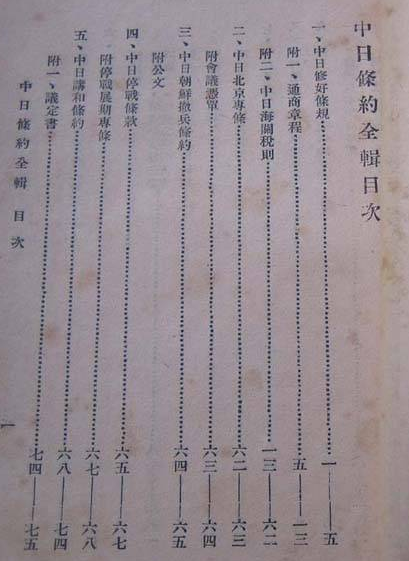 中日條約全輯目次
一、中日修好條規……一——五
附一、通商章程……五——一三
附二、中日海關稅則……一三——六二
二、中日北京專條……六二——六三
附會議憑單……六三——六四
三、中日朝鮮撤兵條約……六四——六五
附公文
四、中日停戰條款……六五——六七
附停戰展期專條……六七——六八
五、中日講和條約……六八——七四
附一、議定書……七四——七五
中日條約全輯 目次
一